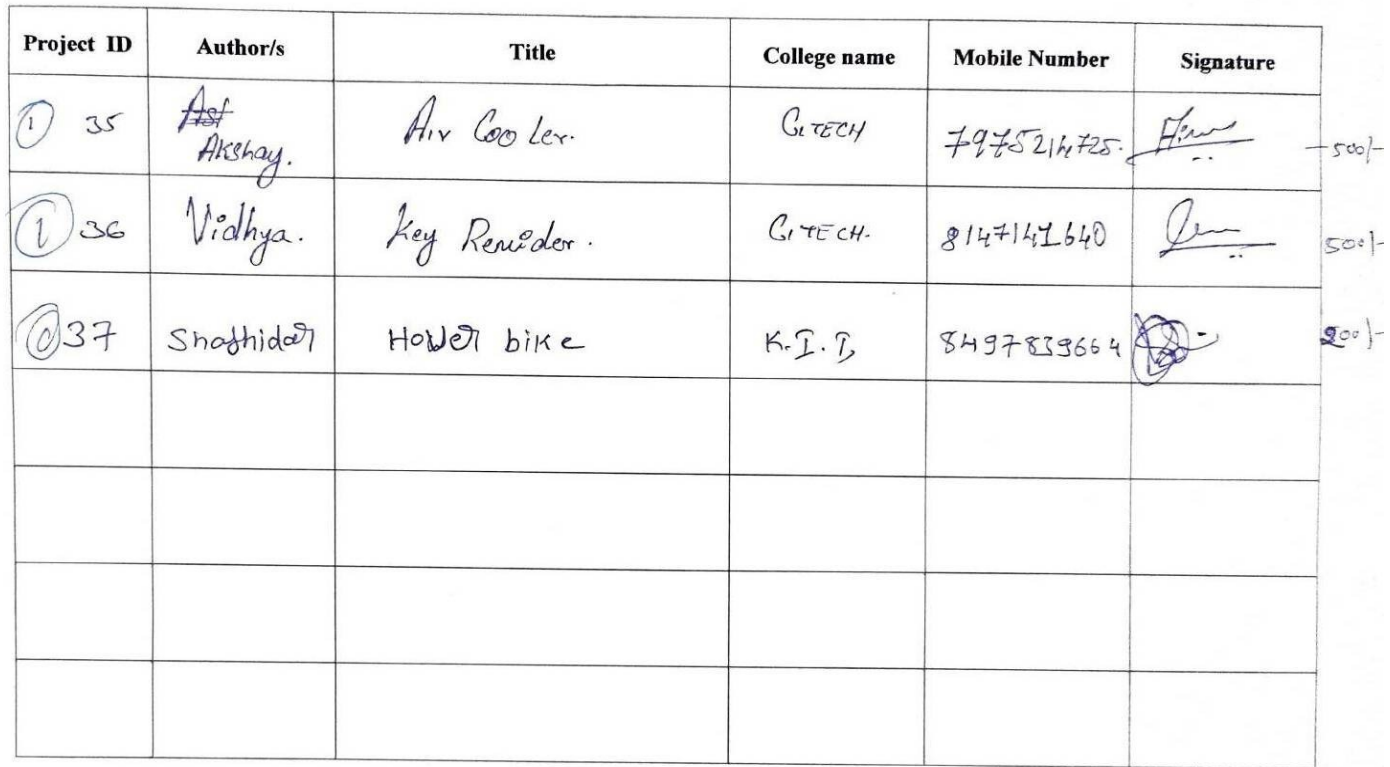 Project ID Author/s Title College name Mobile Number Signature
① 35 Akshay. Air Cooler. GITECH 7975214725. 500/-
① 36 Vidhya. Key Remider. GITECH. 8147141640 500/-
37 Shashidar Hover bike K.I.T, 8497839664 200/-